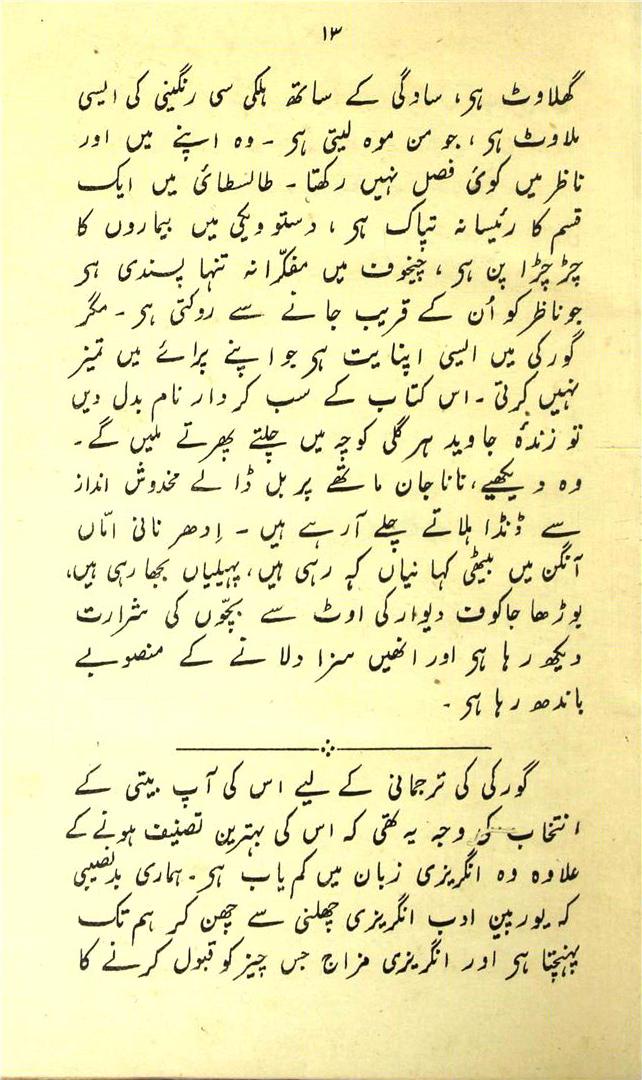 ۱۳
گھلاوٹ ہی، سادگی کے ساتھ ہلکی سی رنگینی کی ایسی
ملاوٹ ہی، جو من موہ لیتی ہی ۔ وہ اپنے میں اور
ناظر میں کوئ فصل نہیں رکھتا ۔ طالسطائ میں ایک
قسم کا رئیسانہ تپاک ہی، دستوویکی میں بیماروں کا
چڑچڑا پن ہی، چیخوف میں مفکّرانہ تنہا پسندی ہی
جو ناظر کو اُن کے قریب جانے سے روکتی ہی ۔ مگر
گورکی میں ایسی اپنایت ہی جو اپنے پرائے میں تمیز
نہیں کرتی ۔ اس کتاب کے سب کردار نام بدل دیں
تو زندۂ جاوید ہر گلی کوچہ میں چلتے پھرتے ملیں گے ۔
وہ دیکھیے، نانا جان ماتھے پر بل ڈالے مخدوش انداز
سے ڈنڈا ہلاتے چلے آرہے ہیں ۔ اِدھر نانی امّاں
آنگن میں بیٹھی کہانیاں کہہ رہی ہیں، پہیلیاں بجھا رہی ہیں،
بوڑھا جاکوف دیوار کی اوٹ سے بچّوں کی شرارت
دیکھ رہا ہی اور انھیں سزا دلانے کے منصوبے
باندھ رہا ہی ۔
گورکی کی ترجمانی کے لیے اس کی آپ بیتی کے
انتخاب کی وجہ یہ تھی کہ اس کی بہترین تصنیف ہونے کے
علاوہ وہ انگریزی زبان میں کم یاب ہی ۔ ہماری بدنصیبی
کہ یورپین ادب انگریزی چھلنی سے چھن کر ہم تک
پہنچتا ہی اور انگریزی مزاج جس چیز کو قبول کرنے کا